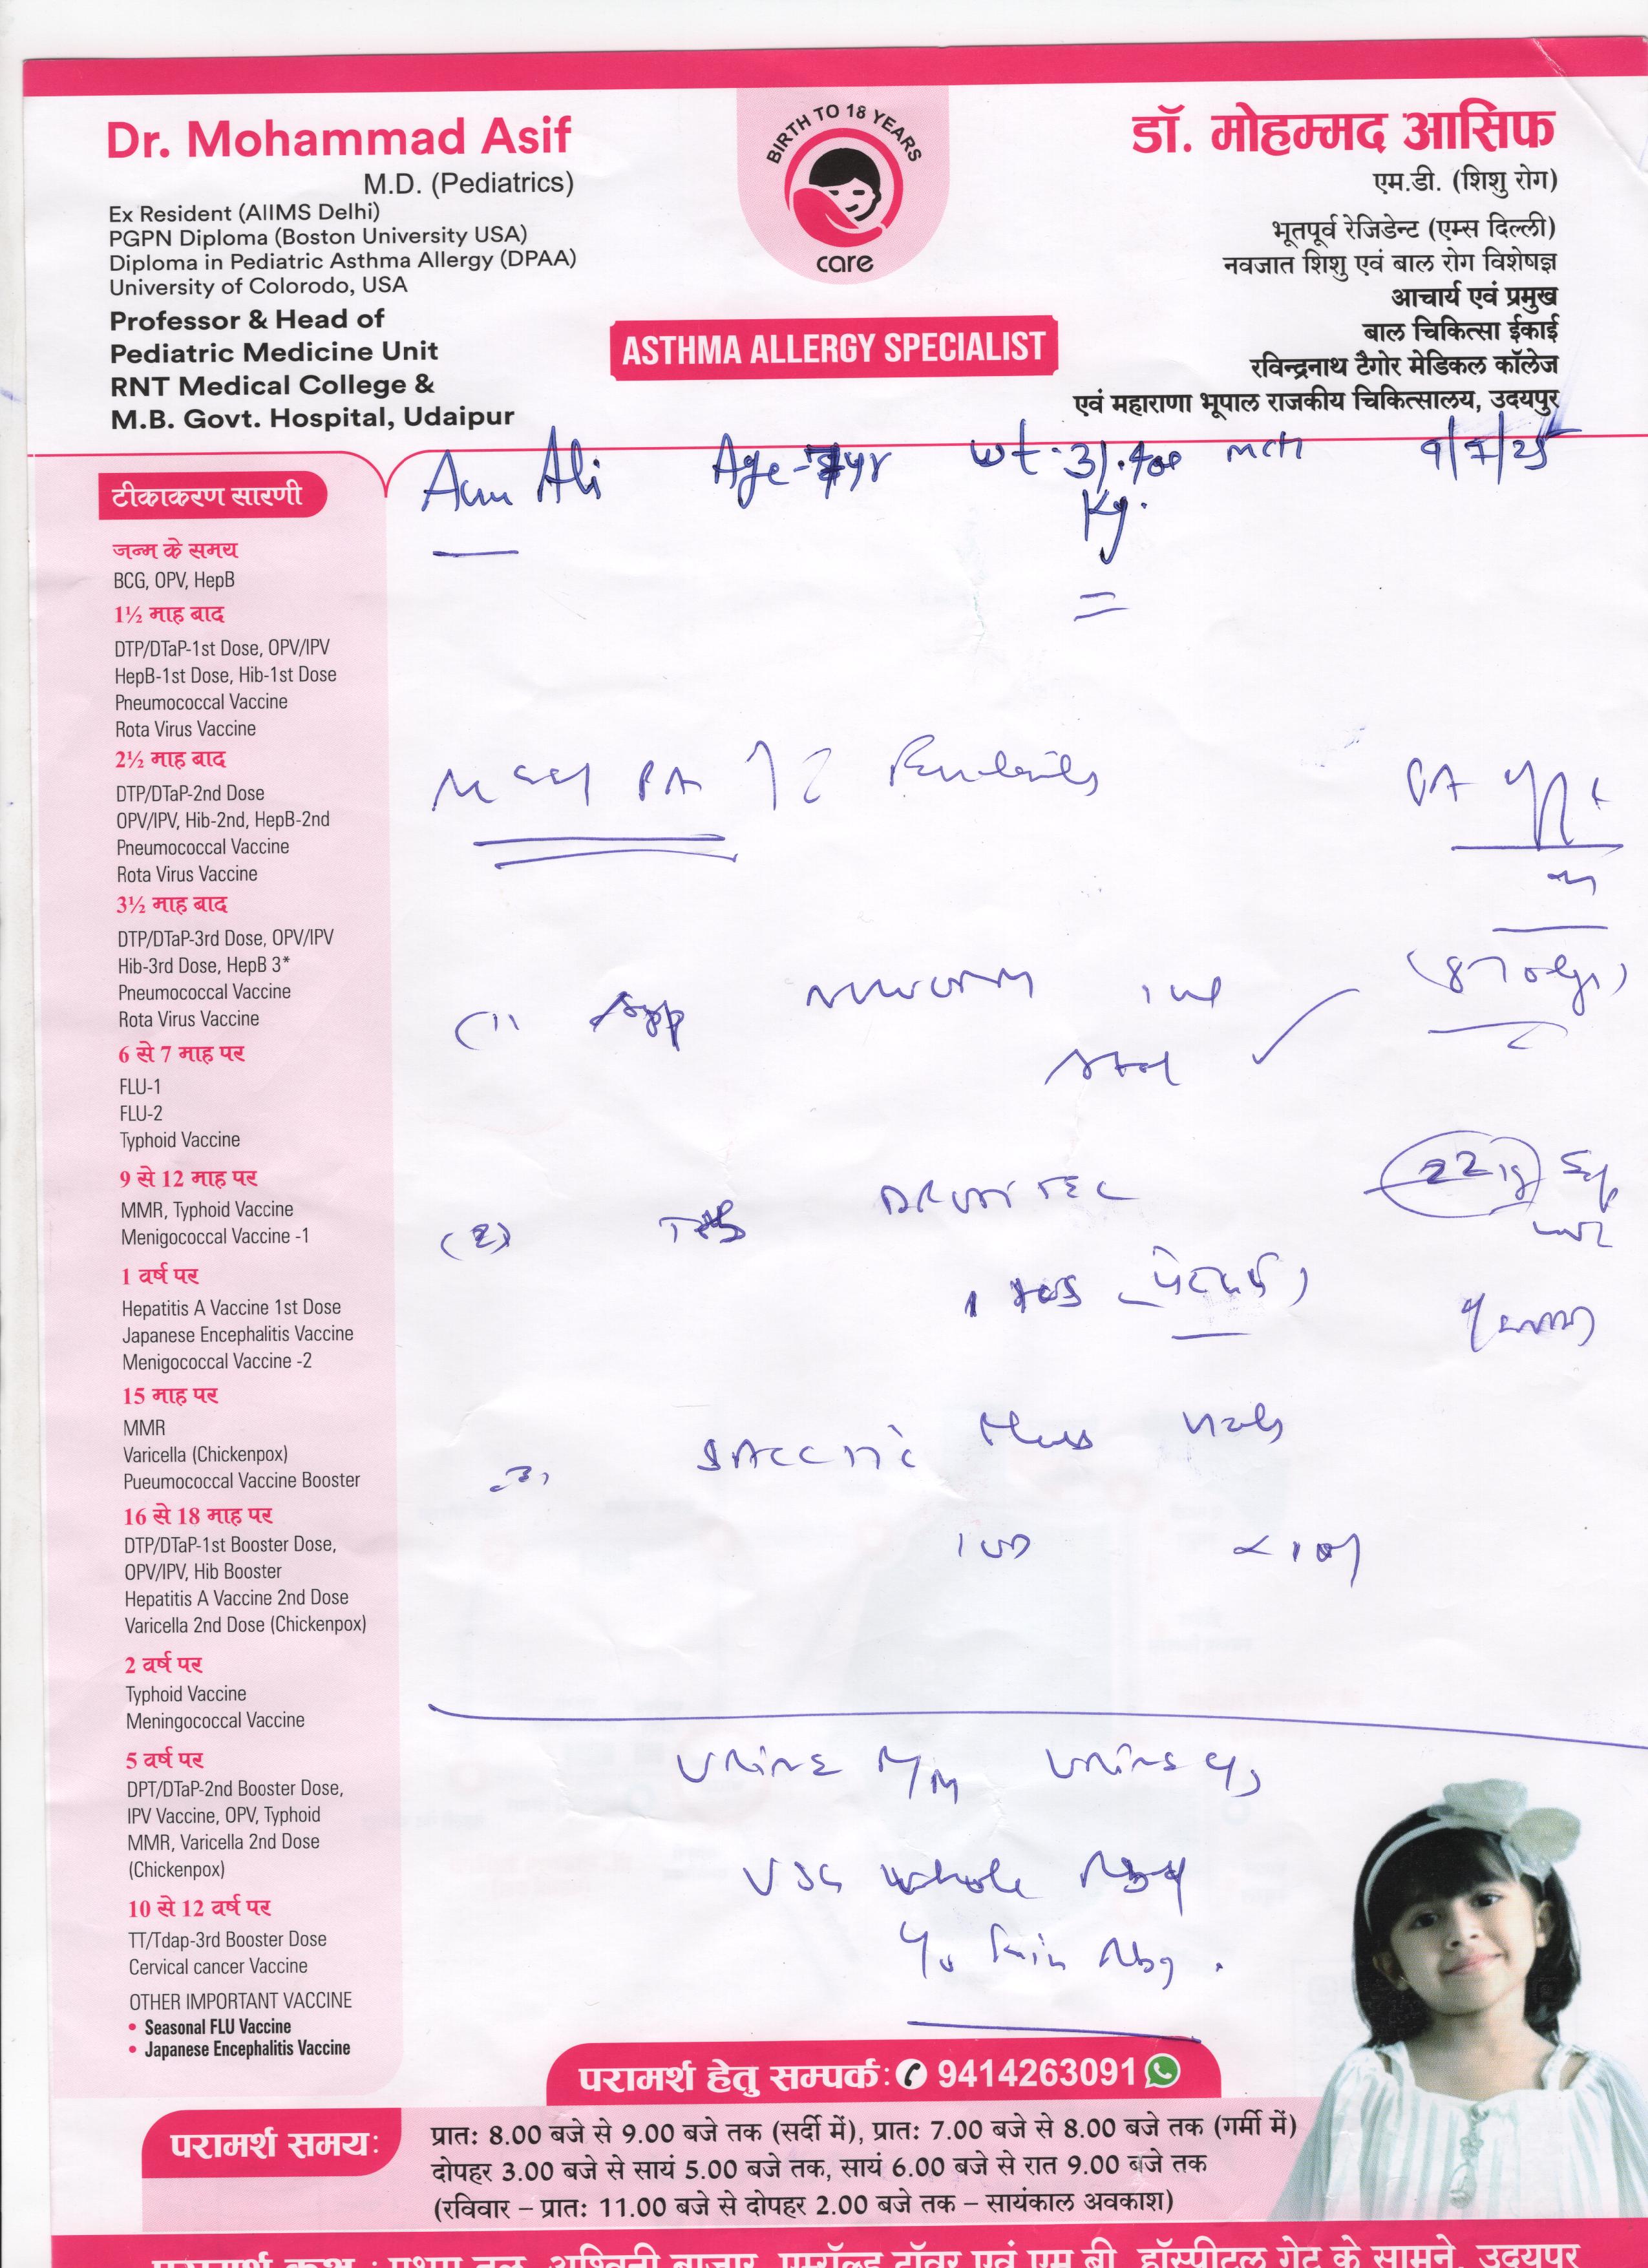 Dr. Mohammad Asif
M.D. (Pediatrics)
Ex Resident (AIIMS Delhi)
PGPN Diploma (Boston University USA)
Diploma in Pediatric Asthma Allergy (DPAA)
University of Colorodo, USA
Professor & Head of
Pediatric Medicine Unit
RNT Medical College &
M.B. Govt. Hospital, Udaipur
BIRTH TO 18 YEARS
care
ASTHMA ALLERGY SPECIALIST
डॉ. मोहम्मद आसिफ
एम.डी. (शिशु रोग)
भूतपूर्व रेजिडेन्ट (एम्स दिल्ली)
नवजात शिशु एवं बाल रोग विशेषज्ञ
आचार्य एवं प्रमुख
बाल चिकित्सा ईकाई
रविन्द्रनाथ टैगोर मेडिकल कॉलेज
एवं महाराणा भूपाल राजकीय चिकित्सालय, उदयपुर
Ali Age- yr wt. 31.400 9/7/25
Kg.
टीकाकरण सारणी
जन्म के समय
BCG, OPV, HepB
1½ माह बाद
DTP/DTaP-1st Dose, OPV/IPV
HepB-1st Dose, Hib-1st Dose
Pneumococcal Vaccine
Rota Virus Vaccine
2½ माह बाद
DTP/DTaP-2nd Dose
OPV/IPV, Hib-2nd, HepB-2nd
Pneumococcal Vaccine
Rota Virus Vaccine
3½ माह बाद
DTP/DTaP-3rd Dose, OPV/IPV
Hib-3rd Dose, HepB 3*
Pneumococcal Vaccine
Rota Virus Vaccine
6 से 7 माह पर
FLU-1
FLU-2
Typhoid Vaccine
9 से 12 माह पर
MMR, Typhoid Vaccine
Menigococcal Vaccine -1
1 वर्ष पर
Hepatitis A Vaccine 1st Dose
Japanese Encephalitis Vaccine
Menigococcal Vaccine -2
15 माह पर
MMR
Varicella (Chickenpox)
Pueumococcal Vaccine Booster
16 से 18 माह पर
DTP/DTaP-1st Booster Dose,
OPV/IPV, Hib Booster
Hepatitis A Vaccine 2nd Dose
Varicella 2nd Dose (Chickenpox)
2 वर्ष पर
Typhoid Vaccine
Meningococcal Vaccine
5 वर्ष पर
DPT/DTaP-2nd Booster Dose,
IPV Vaccine, OPV, Typhoid
MMR, Varicella 2nd Dose
(Chickenpox)
10 से 12 वर्ष पर
TT/Tdap-3rd Booster Dose
Cervical cancer Vaccine
OTHER IMPORTANT VACCINE
• Seasonal FLU Vaccine
• Japanese Encephalitis Vaccine
PA
(1)
(2) TAB
1 (पेटदर्द)
3)
URINE URINE
USG whole
परामर्श हेतु सम्पर्क: 9414263091
परामर्श समय:
प्रातः 8.00 बजे से 9.00 बजे तक (सर्दी में), प्रातः 7.00 बजे से 8.00 बजे तक (गर्मी में)
दोपहर 3.00 बजे से सायं 5.00 बजे तक, सायं 6.00 बजे से रात 9.00 बजे तक
(रविवार – प्रातः 11.00 बजे से दोपहर 2.00 बजे तक – सायंकाल अवकाश)
परामर्श कक्ष : प्रथम तल, अश्विनी बाजार, एमरॉल्ड टॉवर एवं एम.बी. हॉस्पीटल गेट के सामने, उदयपुर